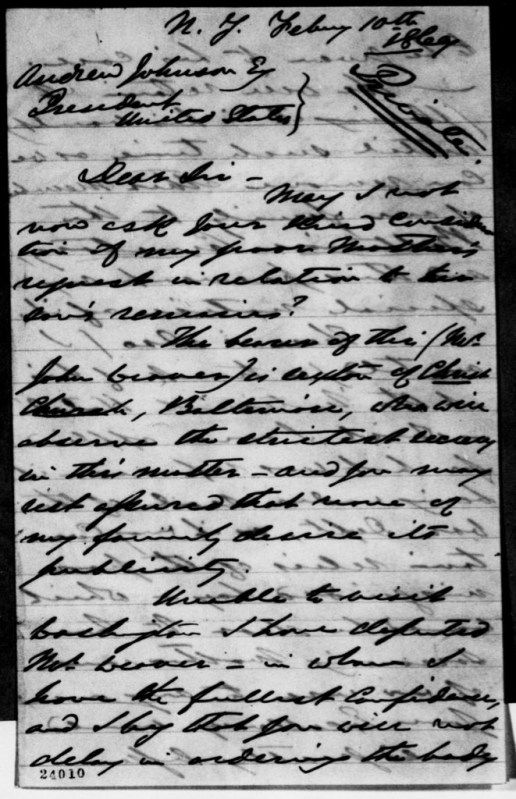 N. Y. Febuy 10th
1869
Andrew Johnson Eq
President
United States
Private.
Dear Sir -
May I not
now ask your kind considera
tion of my poor Mother's
request in relation to her
son's remains?
The bearer of this (Mr.
John Weaver) is sexton of Christ
Church, Baltimore, who will
observe the strictest secrecy
in this matter - and you may
rest assured that none of
my family desire its
publicity.
Unable to visit
Washington I have deputed
Mr. Weaver - in whom I
have the fullest confidence,
and I beg that you will not
delay in ordering the body
24010